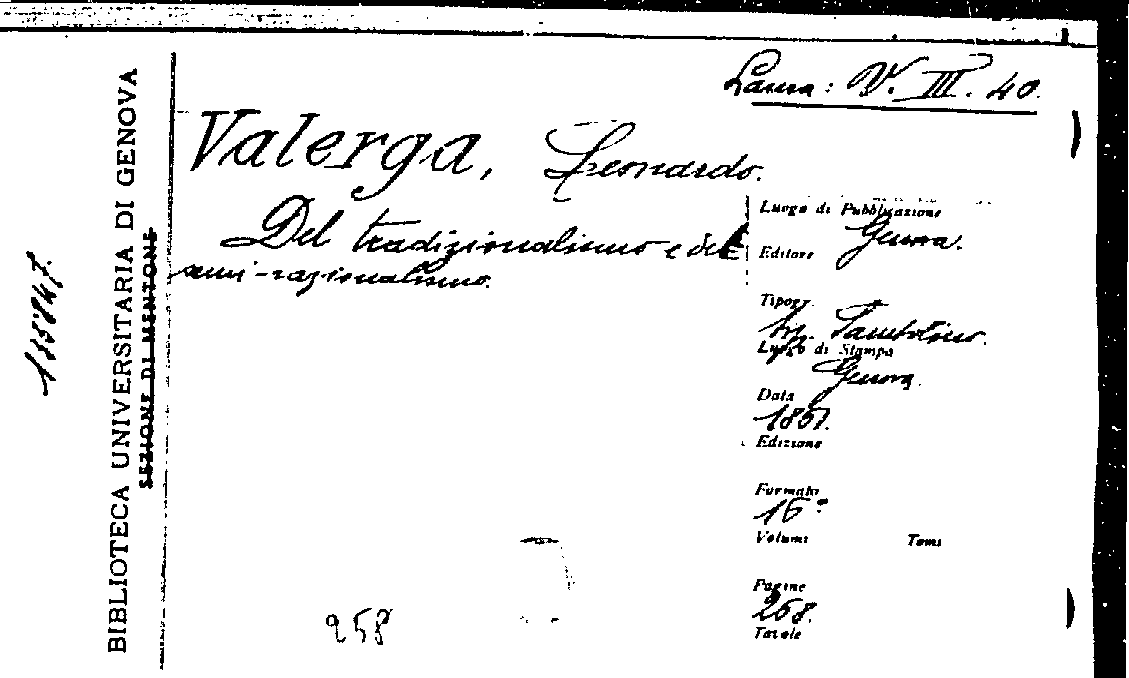 Laura: V. III. 40.
Valerga, Leonardo.
Del tradizionalismo e del
semi-razionalismo.
Luogo di Pubblicazione
Genova.
Editore
Tipogr.
Tip.
Luogo di Stampa
Genova.
Data
Edizione
Formato
16°
Volumi Tomi
Pagine
268.
Tavole
258
BIBLIOTECA UNIVERSITARIA DI GENOVA
SEZIONE DI MENTONE